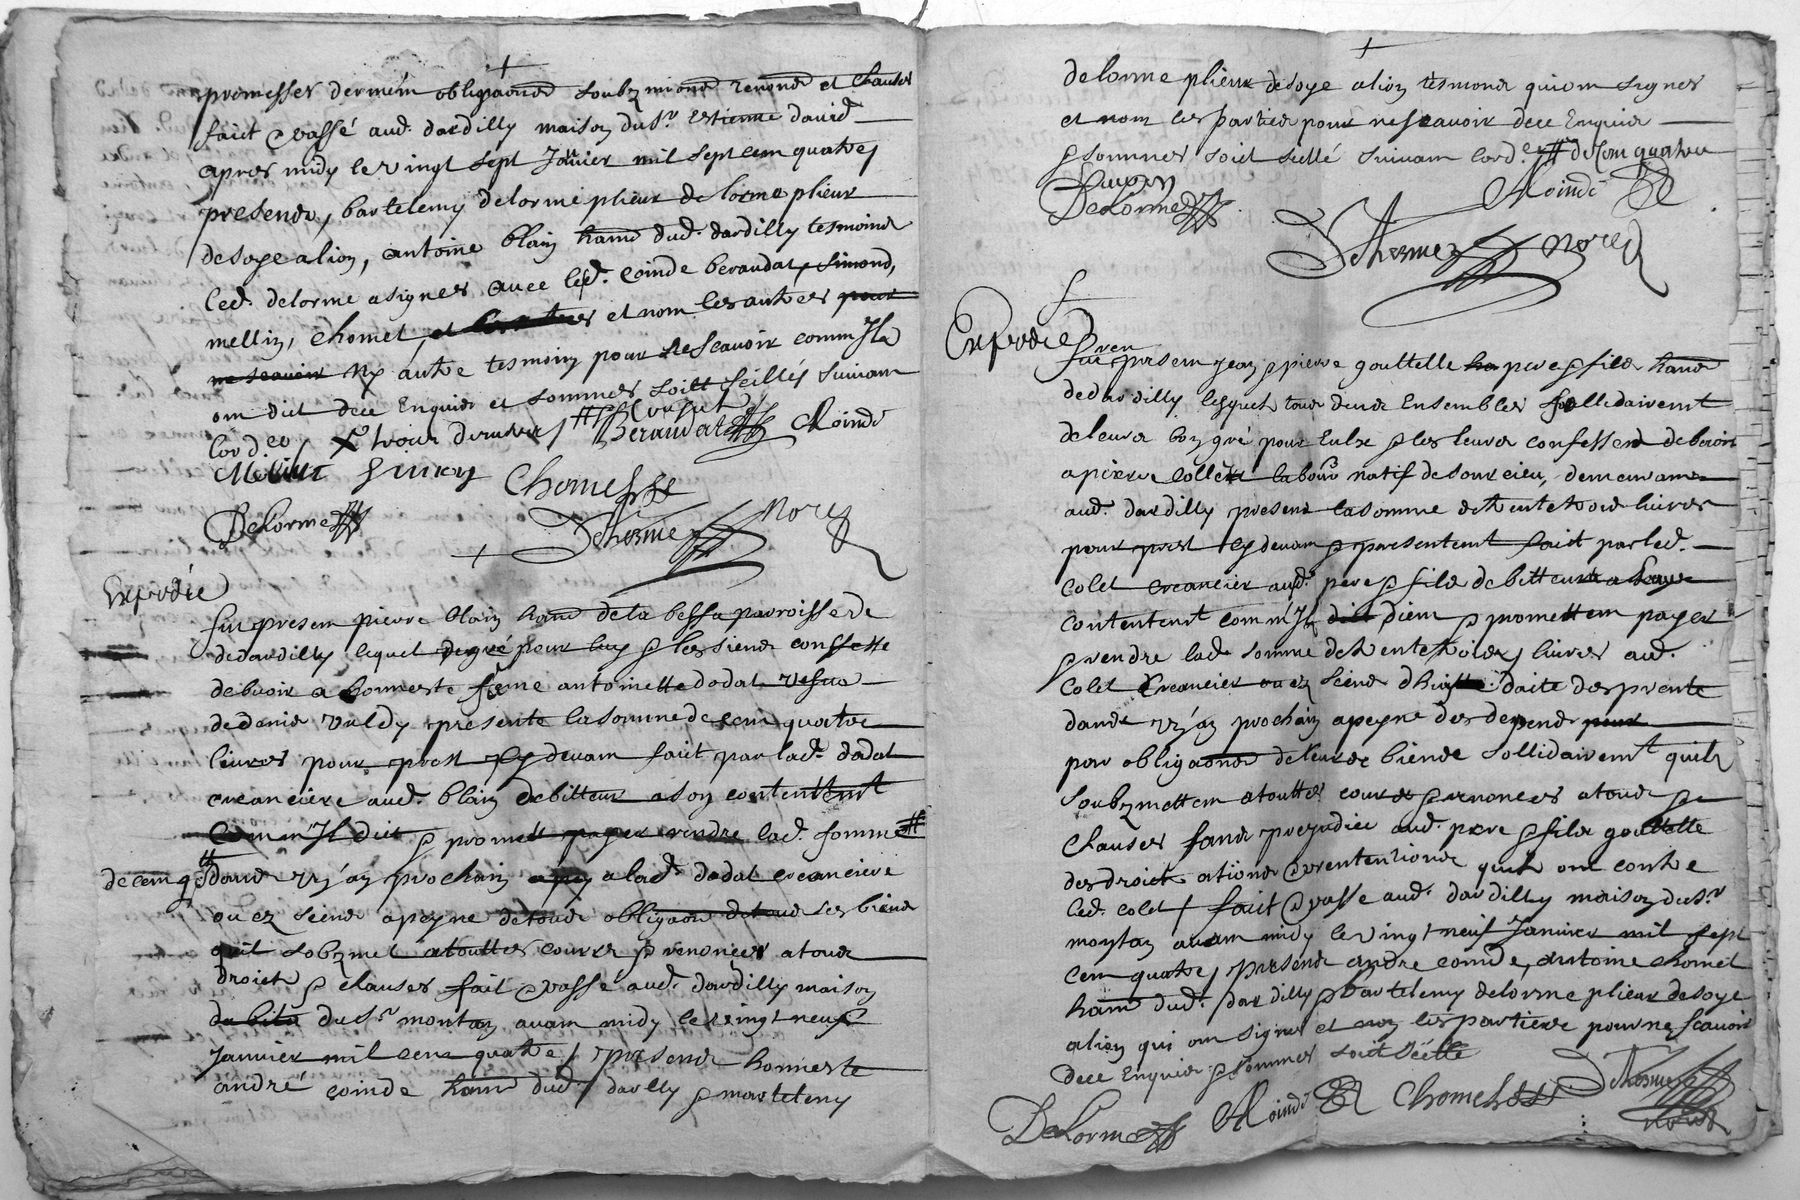 promesses obligaons soubzmions renons et clauses
faict & passé aud. dardilly maison du Sr. Estienne david
apres midy le vingt sept Janvier mil sept cem quatre,
presends, bartelemy delorme plieur de lorme plieur
de soye a lion, antoine blain hand dud. dardilly tesmoins
led. delorme a signer avec led. coinde beraudat, simond,
mellin, chomet, et et nom les autres pour
ne scavoir ny autre tesmoin pour ne scavoir comm Jls
om dict dece Enquis et sommes soitt seillés suivam
lord.
Beraudat Coindé
Chomet
Delorme Dethorme
Expedié
fut presem pierre blain hand de la bessa parroisse de
de dardilly lequel de gré pour luy & les siens conffesse
debvoir a honneste feme antoinette dodat vefue
de denis valdy presente la somme de cem quatre
livres pour prest cy devam faict par lad. dodat
creanciere aud. blain debitteur a son contentemt
comm Jl dict & promett payer rendre lad. somme
de cem dans
prochain a lad. dodat creanciere
ou ez siens a peyne de tous obligaon de tous ses biens
quil sobzmet a touttes cours & renonces a tous
droict & clauses fait & passé aud. dardilly maison
du Sr. montan avam midy le vingt neuf
Janvier mil cem quatre, presens honneste
andré coinde hand dud. darlly & martelemy
delorme plieur de soye a lion tesmoins qui om signer
et nom les parties pour ne scavoir dece Enquis
& sommes soict seellé suivam lord.
Delorme
Coindé
Dethorme
Expedié
furem presem jean & pierre gouttelle pere & fils hand
de dardilly lesquels tous deux Ensembles sollidairemt
de leurs bon gré pour Eulx & les leurs confessem debvoir
a pierre collet labour natif de sourcieu, demeuram
aud. dardilly presem la somme de trente trois livres
pour prest cy devam & presentemt faict par led.
colet creancier aud. pere & fils debitteurs a leur
contentemt comm Jls diem & promettem payer
& rendre lad. somme de trente trois livres aud.
colet creancier ou ez siens daite des presente
dans prochain a peyne des depends
par obligaons de leurs biends sollidairemt quils
soubzmettem a touttes cours & renonces a tous
clauses sans prejudice aud. pere & fils gouttelle
des droict ations & prententions quils om contre
led. colet, faict & passe aud. dardilly maison du Sr.
montan avam midy le vingt neuf Janvier mil sept
cem quatre, presens andre coinde, antoine chomet
hand dud. dardilly & bartelemy delorme plieur de soye
a lion qui om signer et non les parties pour ne scavoir
dece Enquis & sommes soict séellé
Delorme Coindé Chomet Dethorme